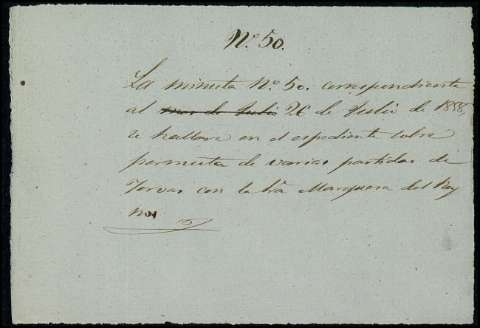 Nº 50.
La minuta Nº 50. correspondiente
al mes de Julio 26 de Julio de 1858,
se hallara en el espediente sobre
permuta de varias partidas de
con la Sra Marquesa del Rey
no